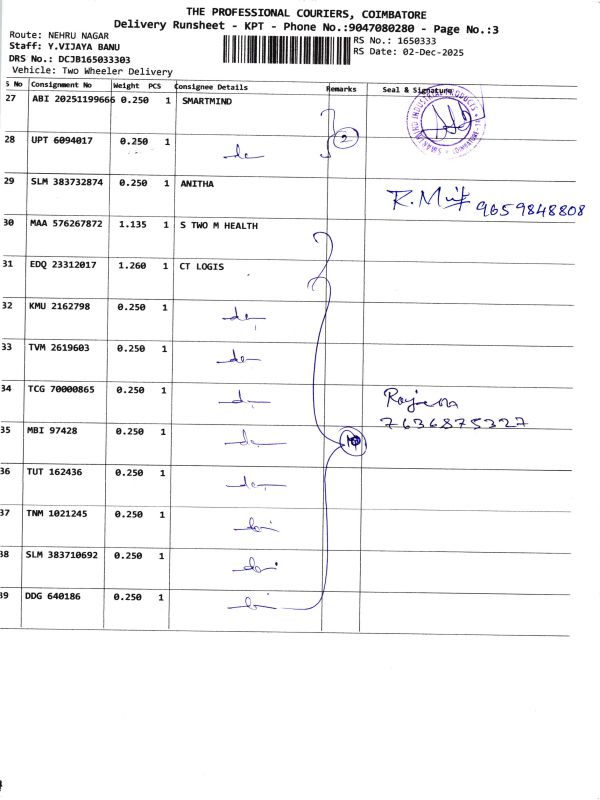 THE PROFESSIONAL COURIERS, COIMBATORE
Delivery Runsheet - KPT - Phone No.:9047080280 - Page No.:3
Route: NEHRU NAGAR
Staff: Y.VIJAYA BANU
DRS No.: DCJB165033303
Vehicle: Two Wheeler Delivery
RS No.: 1650333
RS Date: 02-Dec-2025
S No Consignment No Weight PCS Consignee Details Remarks Seal & Signature
27 ABI 20251199666 0.250 1 SMARTMIND
28 UPT 6094017 0.250 1 2
29 SLM 383732874 0.250 1 ANITHA
9659848808
30 MAA 576267872 1.135 1 S TWO M HEALTH
31 EDQ 23312017 1.260 1 CT LOGIS
32 KMU 2162798 0.250 1
33 TVM 2619603 0.250 1
34 TCG 70000865 0.250 1
7636875327
35 MBI 97428 0.250 1
36 TUT 162436 0.250 1
37 TNM 1021245 0.250 1
38 SLM 383710692 0.250 1
39 DDG 640186 0.250 1